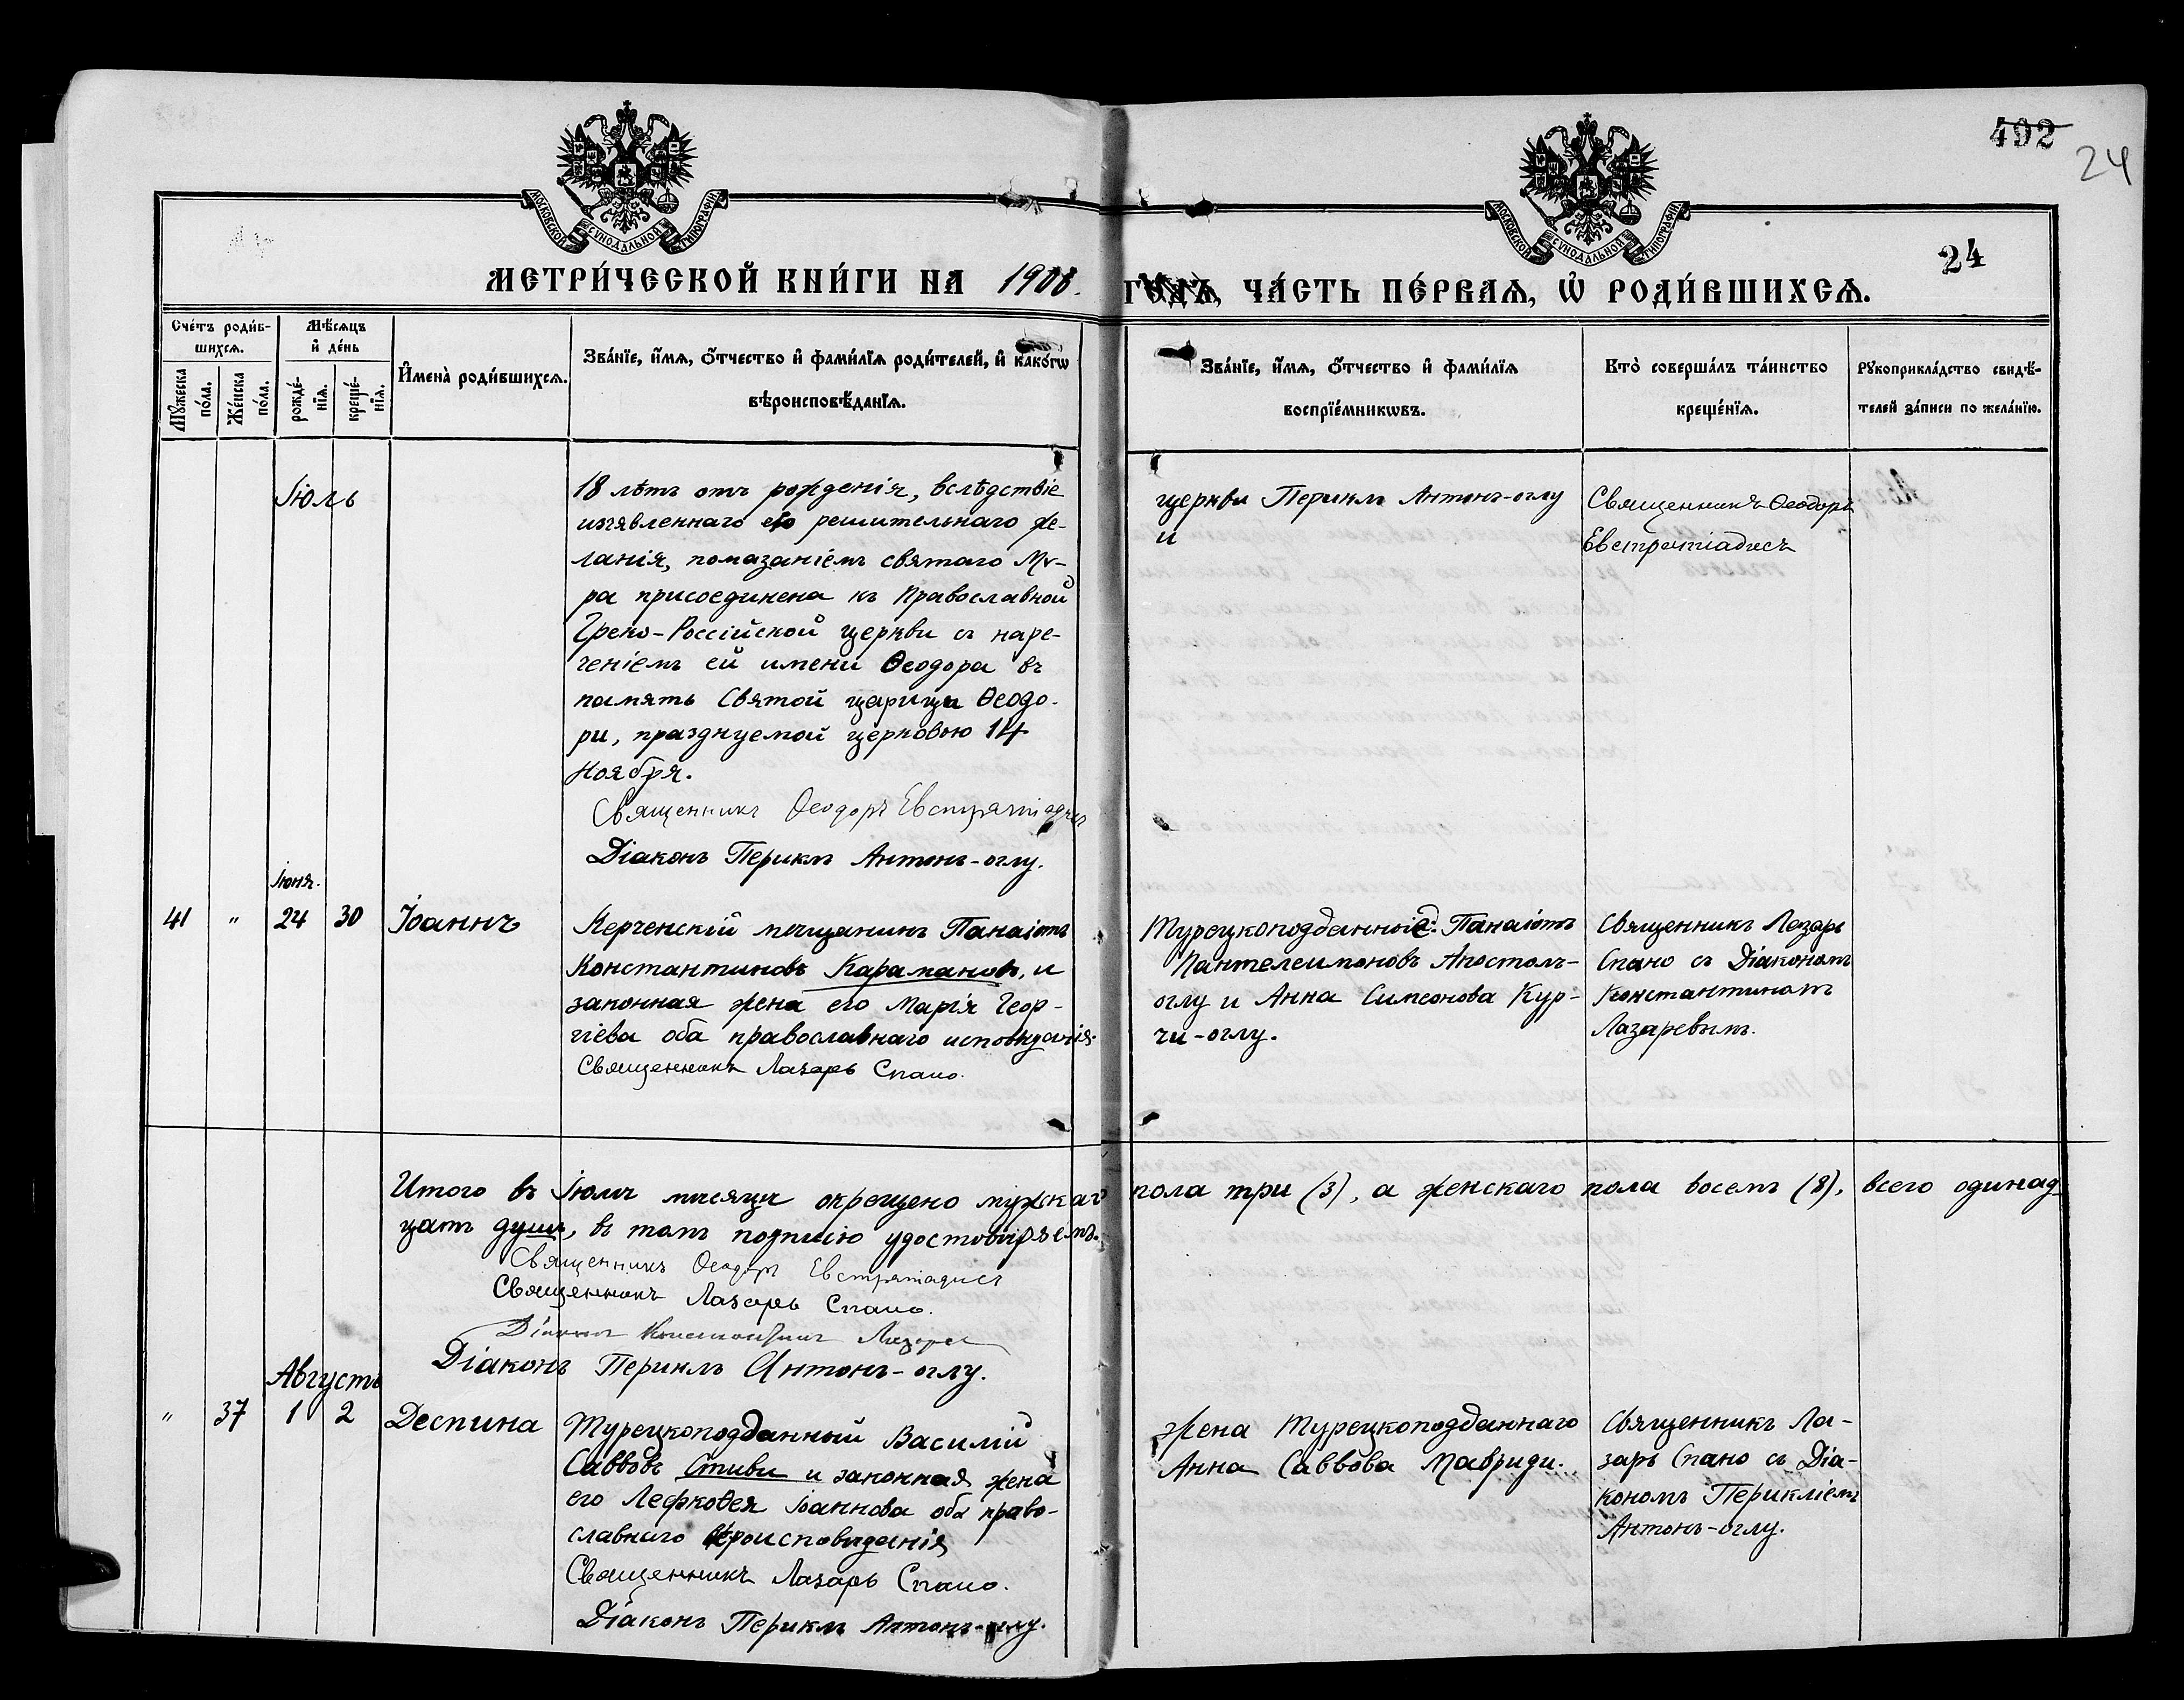 492
24
МОСКОВСКОЙ СѴНОДАЛЬНОЙ ТИПОГРАФІИ
МОСКОВСКОЙ СѴНОДАЛЬНОЙ ТИПОГРАФІИ
24
МЕТРИ́ЧЕСКОЙ КНИ́ГИ НА 1908. ГОДЪ, ЧА́СТЬ ПЕ́РВАѦ, Ѡ҆ РОДИ́ВШИХСѦ.
Сче́тъ роди́в-
шихсѧ.
Мꙋ́жеска
по́ла.
Же́нска
по́ла.
Мѣ́сѧцъ
и҆ де́нь
рожде́-
нїѧ.
креще́-
нїѧ.
И҆мена̀ роди́вшихсѧ.
Зва́нїе, и҆́мѧ, ѻ҆́тчество и҆ фами́лїѧ роди́телей, и҆ како́гѡ
вѣроисповѣ́данїѧ.
Зва́нїе, и҆́мѧ, ѻ҆́тчество и҆ фами́лїѧ
воспрїе́мникѡвъ.
Кто̀ соверша́лъ та́инство
креще́нїѧ.
Рꙋкоприкла́дство свидѣ́-
телей за́писи по жела́нїю.
Іюль
18 лѣтъ отъ рожденія, вслѣдствіе
изъявленнаго ею решительнаго же-
ланія, помазаніемъ святаго Мѵ-
ра присоединена къ Православной
Греко-Россійской церкви съ наре-
ченіемъ ей имени Ѳеодора въ
память Святой царицы Ѳеодо-
ри, празднуемой церковью 14
Ноября.
Священникъ Ѳеодоръ Евстратіадисъ
Діаконъ Периклъ Антонъ-оглу.
церкви Периклъ Антонъ-оглу
и
Священникъ Ѳеодоръ
Евстратіадисъ
Іюня.
41 " 24 30 Іоаннъ
Керченскій мещанинъ Панаіотъ
Константиновъ Карамановъ, и
законная жена его Марія Геор-
гіева оба православнаго исповѣданія.
Священникъ Лазарь Спано.
Турецкоподданные: Панаіотъ
Пантелеимоновъ Апостолъ-
оглу и Анна Симеонова Кур-
чи-оглу.
Священникъ Лазарь
Спано съ Діакономъ
Константиномъ
Лазаревымъ.
Итого въ Іюлѣ мѣсяцѣ окрещено мужскаго пола три (3), а женскаго пола восемъ (8), всего одинад-
цать душъ, въ томъ подписію удостовѣряемъ.
Священникъ Ѳеодоръ Евстратіадисъ
Священникъ Лазарь Спано.
Діаконъ Константинъ Лазарев
Діаконъ Периклъ Антонъ-оглу.
Августъ
" 37 1 2 Деспина
Турецкоподданный Василій
Саввовъ Стиви и законная жена
его Лефкоѳея Іоаннова оба право-
славнаго вѣроисповѣданія
Священникъ Лазарь Спано.
Діаконъ Периклъ Антонъ-оглу.
Жена Турецкоподданнаго
Анна Саввова Мавриди.
Священникъ Ла-
зарь Спано съ Діа-
кономъ Перикліемъ
Антонъ-оглу.